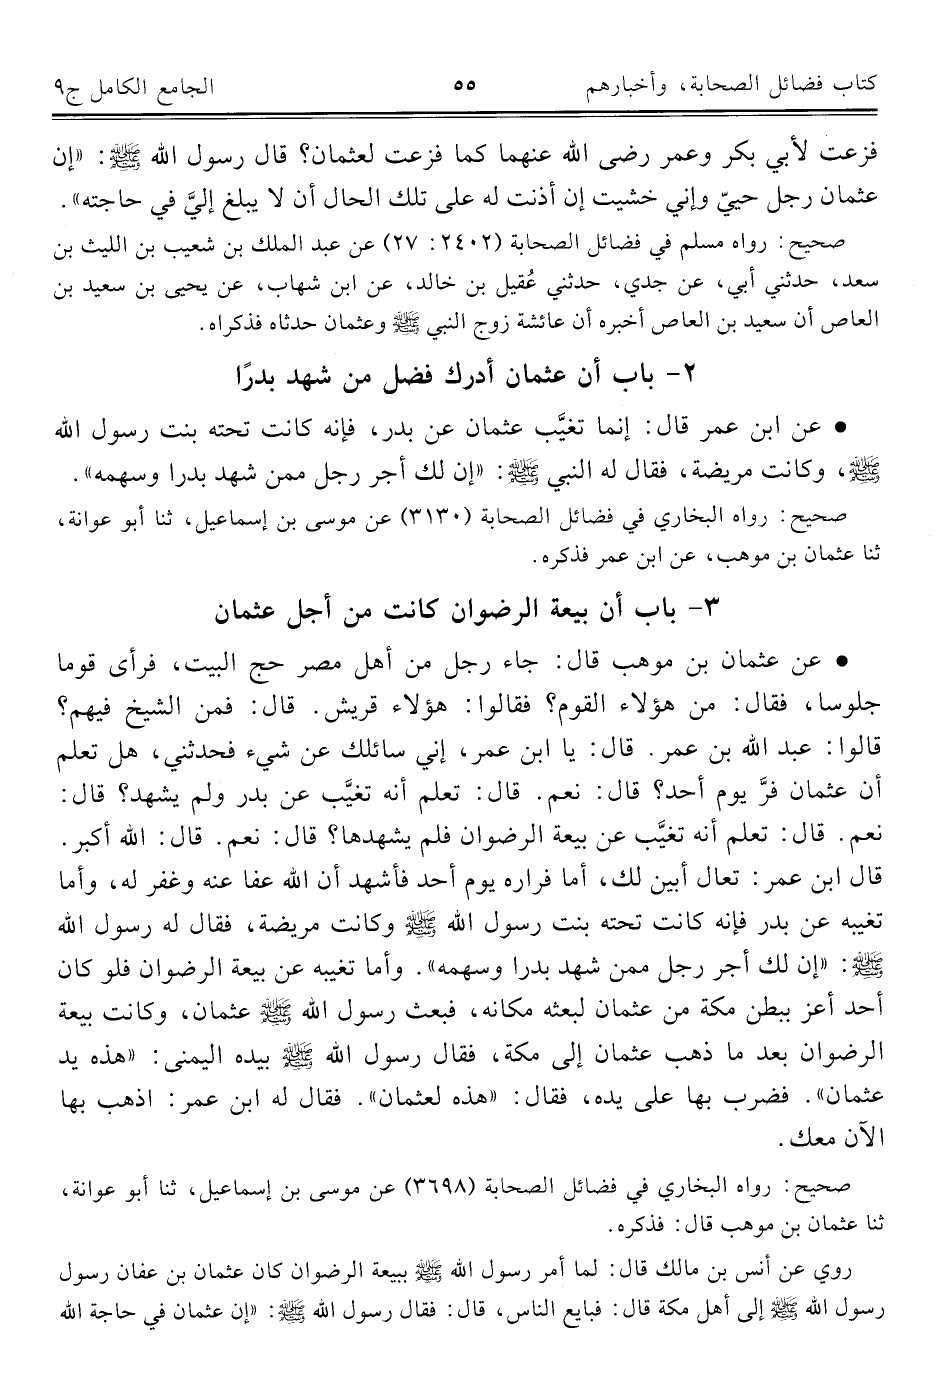 كتاب فضائل الصحابة، وأخبارهم ٥٥ الجامع الكامل ج٩
فزعت لأبي بكر وعمر رضى الله عنهما كما فزعت لعثمان؟ قال رسول الله ﷺ: «إن
عثمان رجل حييّ وإني خشيت إن أذنت له على تلك الحال أن لا يبلغ إليَّ في حاجته».
صحيح: رواه مسلم في فضائل الصحابة (٢٤٠٢: ٢٧) عن عبد الملك بن شعيب بن الليث بن
سعد، حدثني أبي، عن جدي، حدثني عُقيل بن خالد، عن ابن شهاب، عن يحيى بن سعيد بن
العاص أن سعيد بن العاص أخبره أن عائشة زوج النبي ﷺ وعثمان حدثاه فذكراه.
٢- باب أن عثمان أدرك فضل من شهد بدرًا
● عن ابن عمر قال: إنما تغيَّب عثمان عن بدر، فإنه كانت تحته بنت رسول الله
ﷺ، وكانت مريضة، فقال له النبي ﷺ: «إن لك أجر رجل ممن شهد بدرا وسهمه».
صحيح: رواه البخاري في فضائل الصحابة (٣١٣٠) عن موسى بن إسماعيل، ثنا أبو عوانة،
ثنا عثمان بن موهب، عن ابن عمر فذكره.
٣- باب أن بيعة الرضوان كانت من أجل عثمان
● عن عثمان بن موهب قال: جاء رجل من أهل مصر حج البيت، فرأى قوما
جلوسا، فقال: من هؤلاء القوم؟ فقالوا: هؤلاء قريش. قال: فمن الشيخ فيهم؟
قالوا: عبد الله بن عمر. قال: يا ابن عمر، إني سائلك عن شيء فحدثني، هل تعلم
أن عثمان فرَّ يوم أحد؟ قال: نعم. قال: تعلم أنه تغيَّب عن بدر ولم يشهد؟ قال:
نعم. قال: تعلم أنه تغيَّب عن بيعة الرضوان فلم يشهدها؟ قال: نعم. قال: الله أكبر.
قال ابن عمر: تعال أبين لك، أما فراره يوم أحد فأشهد أن الله عفا عنه وغفر له، وأما
تغيبه عن بدر فإنه كانت تحته بنت رسول الله ﷺ وكانت مريضة، فقال له رسول الله
ﷺ: «إن لك أجر رجل ممن شهد بدرا وسهمه». وأما تغيبه عن بيعة الرضوان فلو كان
أحد أعز ببطن مكة من عثمان لبعثه مكانه، فبعث رسول الله ﷺ عثمان، وكانت بيعة
الرضوان بعد ما ذهب عثمان إلى مكة، فقال رسول الله ﷺ بيده اليمنى: «هذه يد
عثمان». فضرب بها على يده، فقال: «هذه لعثمان». فقال له ابن عمر: اذهب بها
الآن معك.
صحيح: رواه البخاري في فضائل الصحابة (٣٦٩٨) عن موسى بن إسماعيل، ثنا أبو عوانة،
ثنا عثمان بن موهب قال: فذكره.
روي عن أنس بن مالك قال: لما أمر رسول الله ﷺ ببيعة الرضوان كان عثمان بن عفان رسول
رسول الله ﷺ إلى أهل مكة قال: فبايع الناس، قال: فقال رسول الله ﷺ: «إن عثمان في حاجة الله